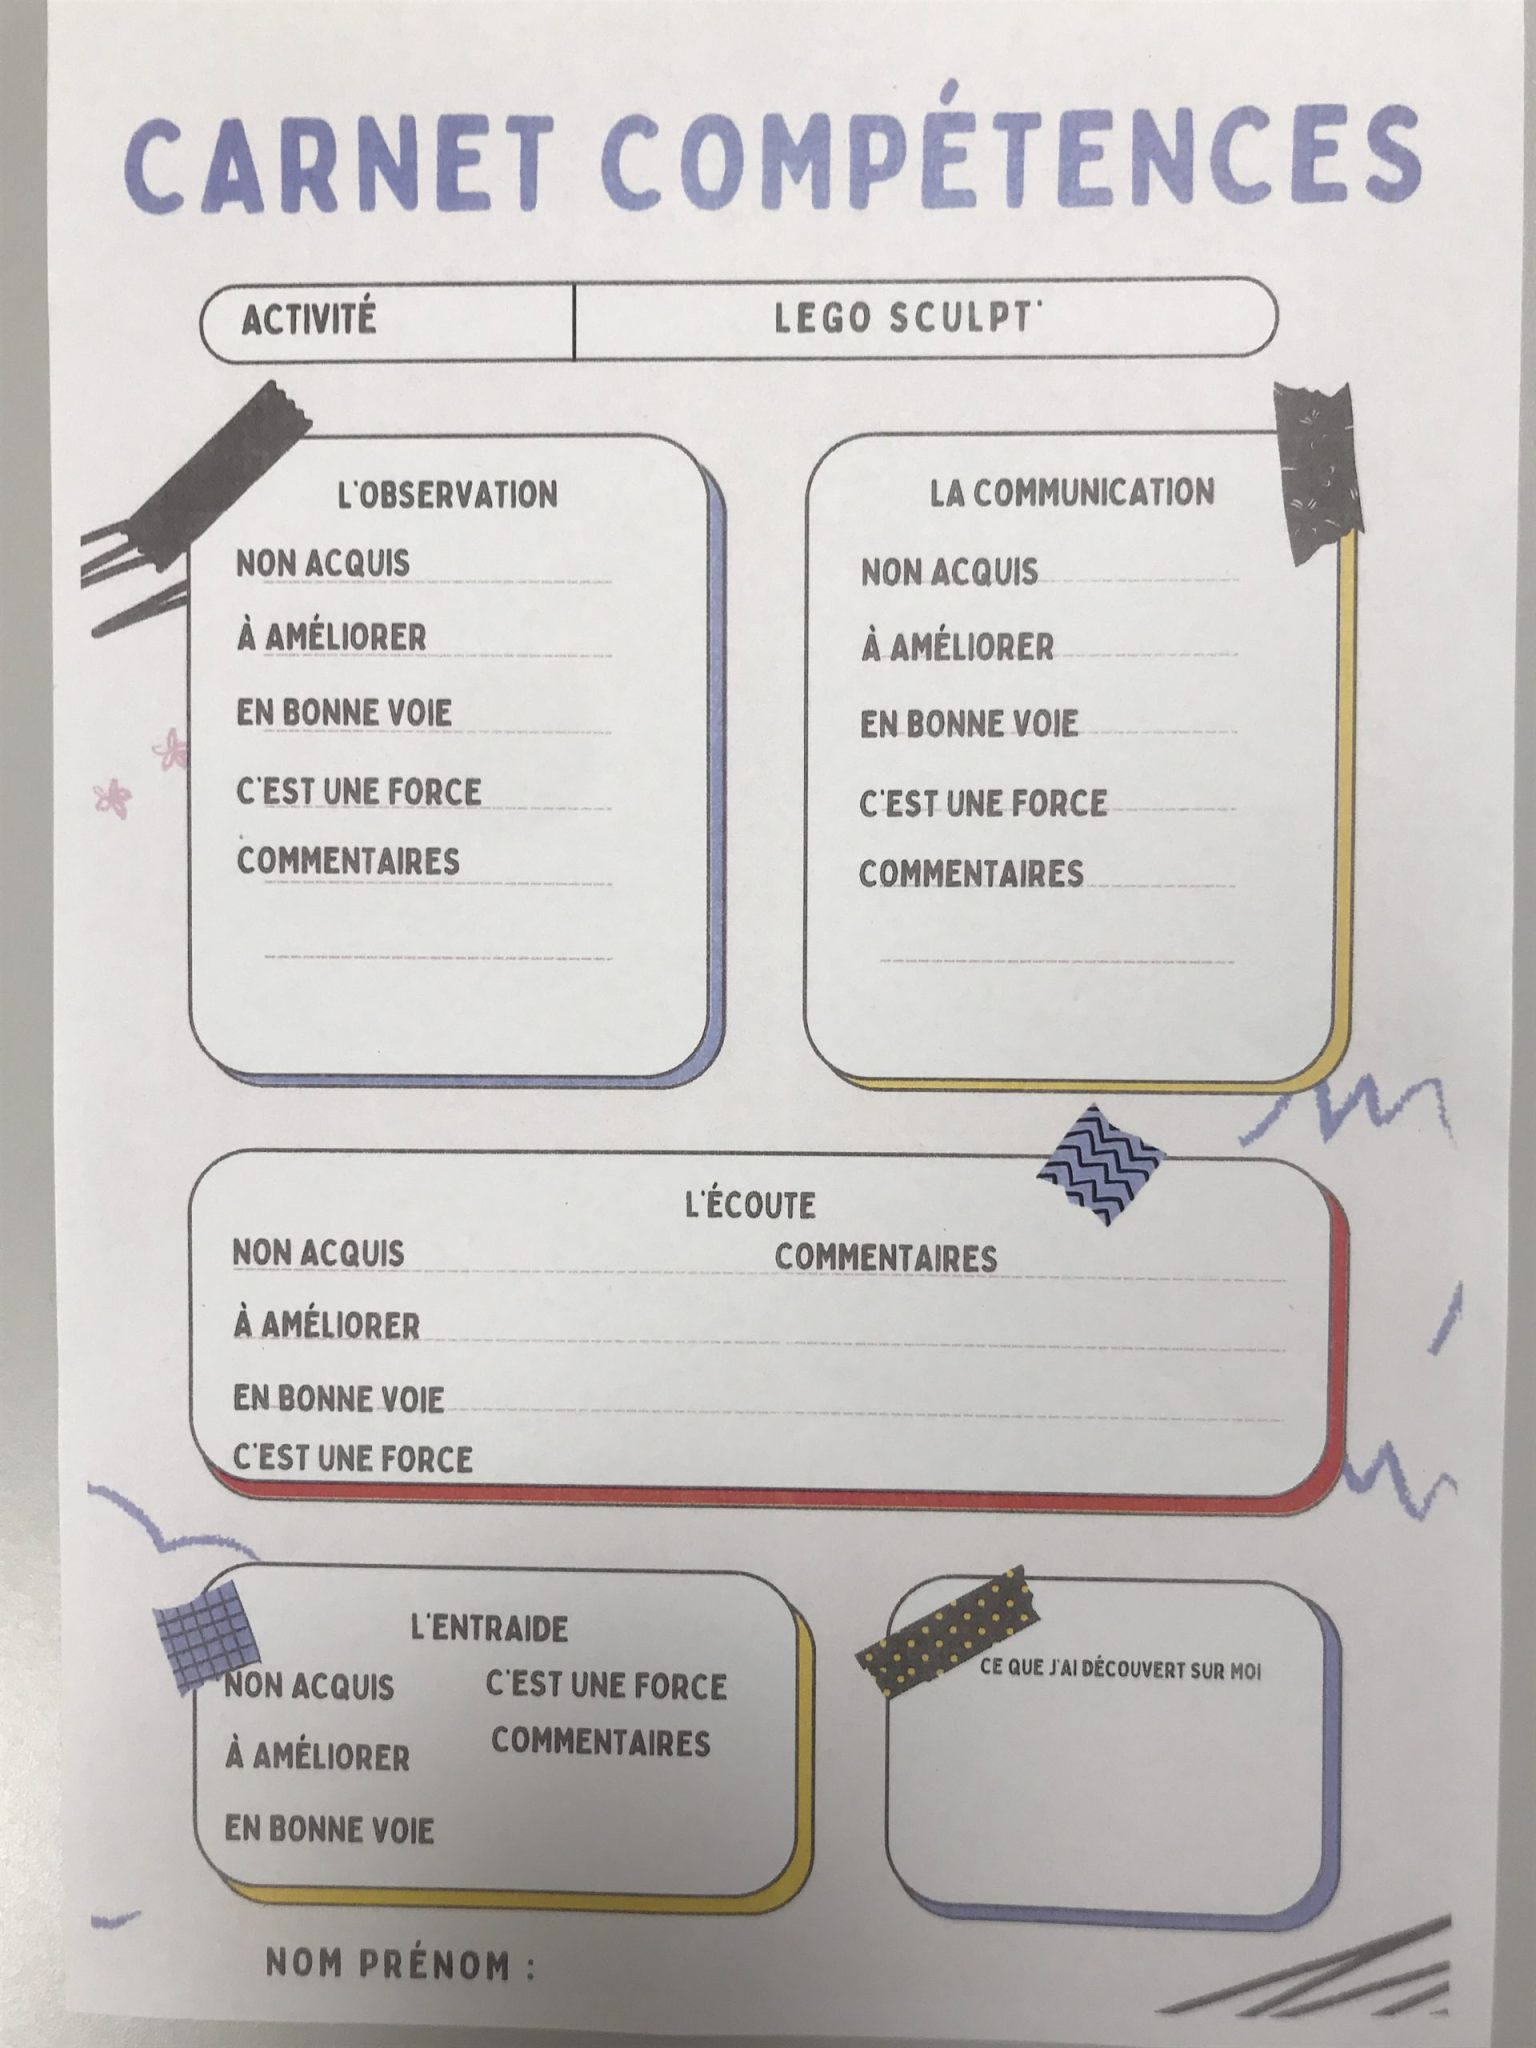 CARNET COMPÉTENCES
ACTIVITÉ
LEGO SCULPT'
L'OBSERVATION
NON ACQUIS
À AMÉLIORER
EN BONNE VOIE
C'EST UNE FORCE
COMMENTAIRES
LA COMMUNICATION
NON ACQUIS
À AMÉLIORER
EN BONNE VOIE
C'EST UNE FORCE
COMMENTAIRES
L'ÉCOUTE
NON ACQUIS
À AMÉLIORER
EN BONNE VOIE
C'EST UNE FORCE
COMMENTAIRES
L'ENTRAIDE
NON ACQUIS
À AMÉLIORER
EN BONNE VOIE
C'EST UNE FORCE
COMMENTAIRES
CE QUE J'AI DÉCOUVERT SUR MOI
NOM PRÉNOM :